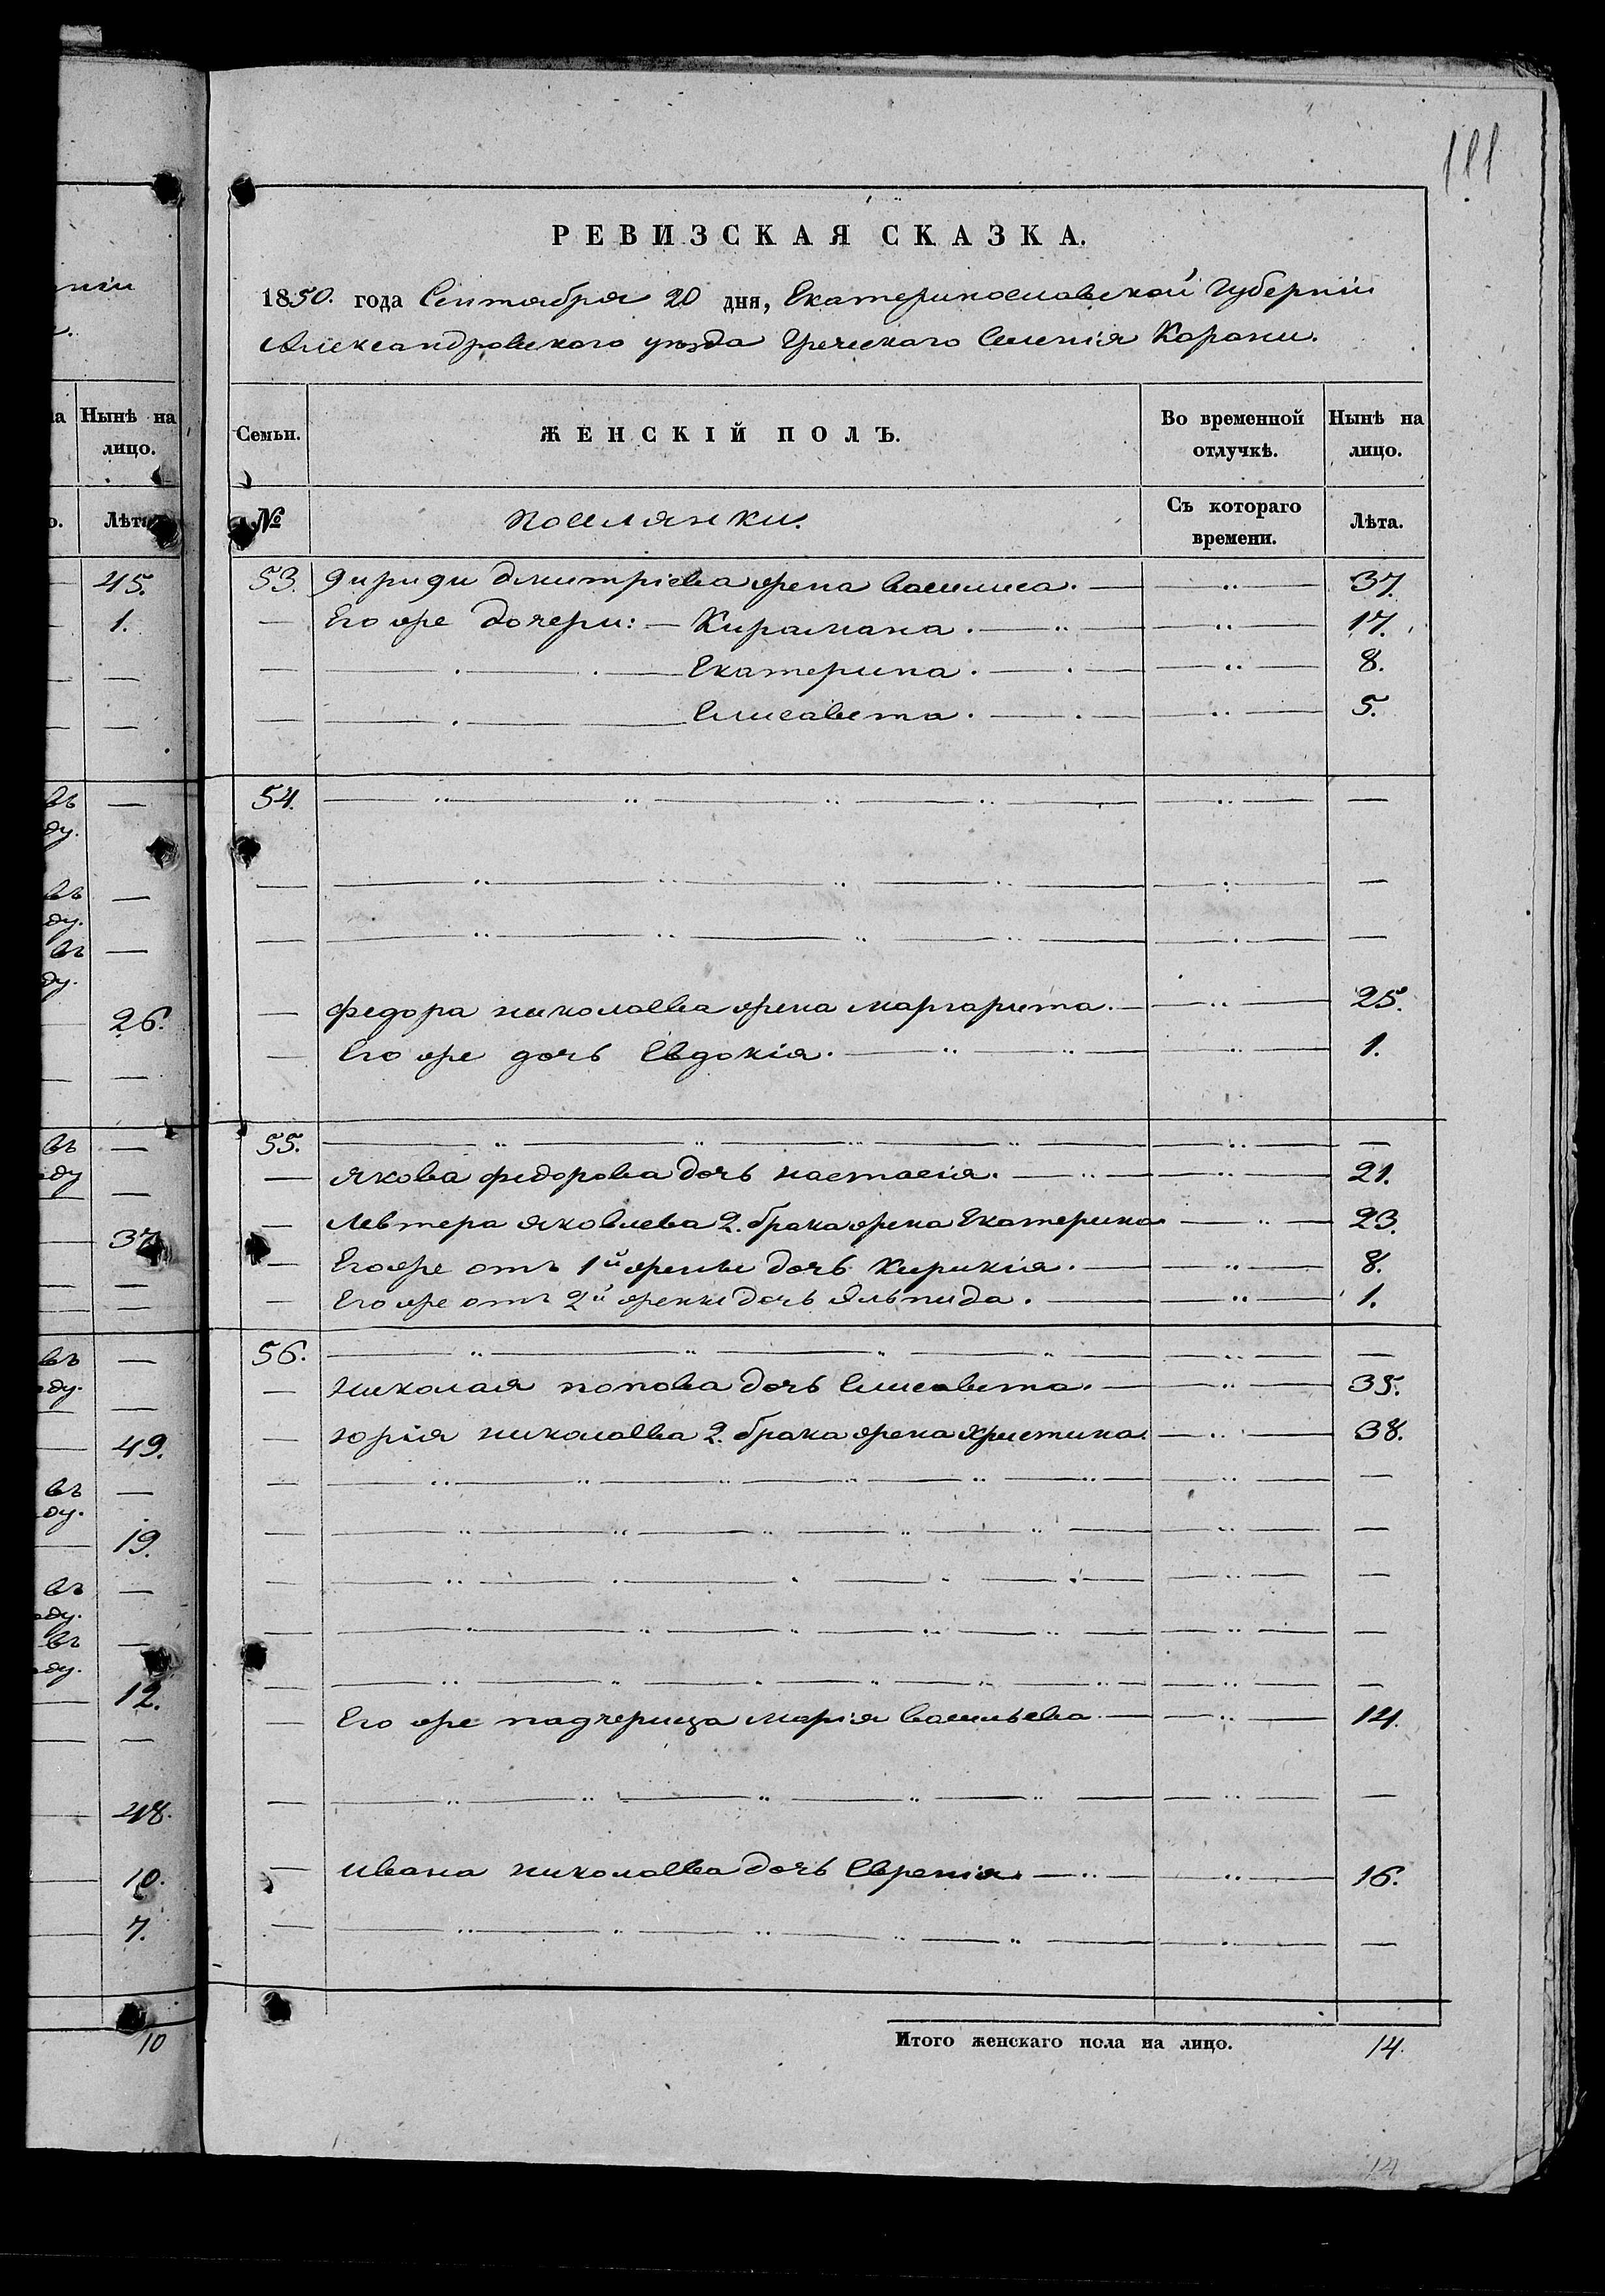 111
РЕВИЗСКАЯ СКАЗКА.
1850. года Сентября 20 дня, Екатеринославской Губерніи
Александровскаго уѣзда Греческаго Селенія Карани.
Нынѣ на лицо.
Лѣта
45.
1.
въ
ду.
въ
ду.
въ
ду.
26.
въ
ду
37
въ
ду.
49.
въ
ду.
19.
въ
ду.
въ
ду.
12.
48.
10.
7.
10
Семьи. ЖЕНСКІЙ ПОЛЪ. Во временной отлучкѣ. Нынѣ на лицо.
№ Поселянки. Съ котораго времени. Лѣта.
53. Дмитріева жена Василиса. 37.
Его же дочери: Кирамана. 17.
Екатерина. 8.
Елисавета. 5.
54. —
Федора николаева жена маргарита. 25.
Его же дочь Евдокія. 1.
55. —
Якова федорова дочь настасія. 21.
Левтера яковлева 2. брака жена Екатерина 23.
Его же отъ 1й жены дочь Кирикія. 8.
Его же отъ 2й жены дочь Эльпида. 1.
56. —
Николая попова дочь Елисавета. 35.
Юрія николаева 2. брака жена Христина 38.
Его же падчерица Марія Васильева 14.
Ивана николаева дочь Евгенія. 16.
Итого женскаго пола на лицо. 14.
14